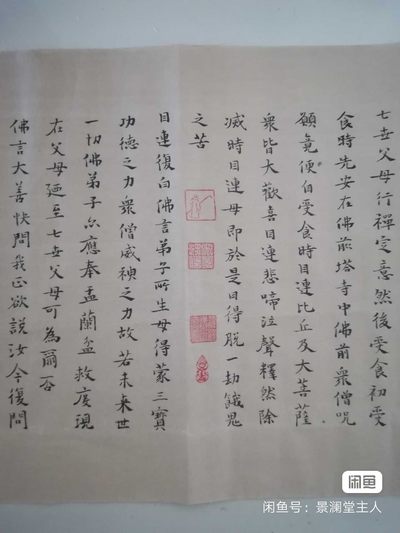 七世父母行禪定意然後受食初受
食時先安在佛前塔寺中佛前衆僧呪
願竟便自受食時目連比丘及大菩薩
衆皆大歡喜目連悲啼泣聲釋然除
滅時目連母即於是日得脫一劫餓鬼
之苦
目連復白佛言弟子所生母得蒙三寶
功德之力衆僧威神之力故若未來世
一切佛弟子亦應奉盂蘭盆救度現
在父母廼至七世父母可為爾否
佛言大善快問我正欲說汝今復問
闲鱼
闲鱼号：景澜堂主人